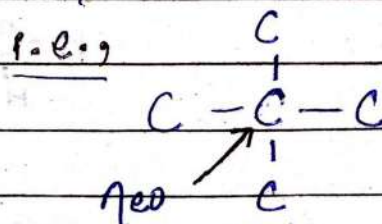 i.e.,
C
C - C - C
neo
C